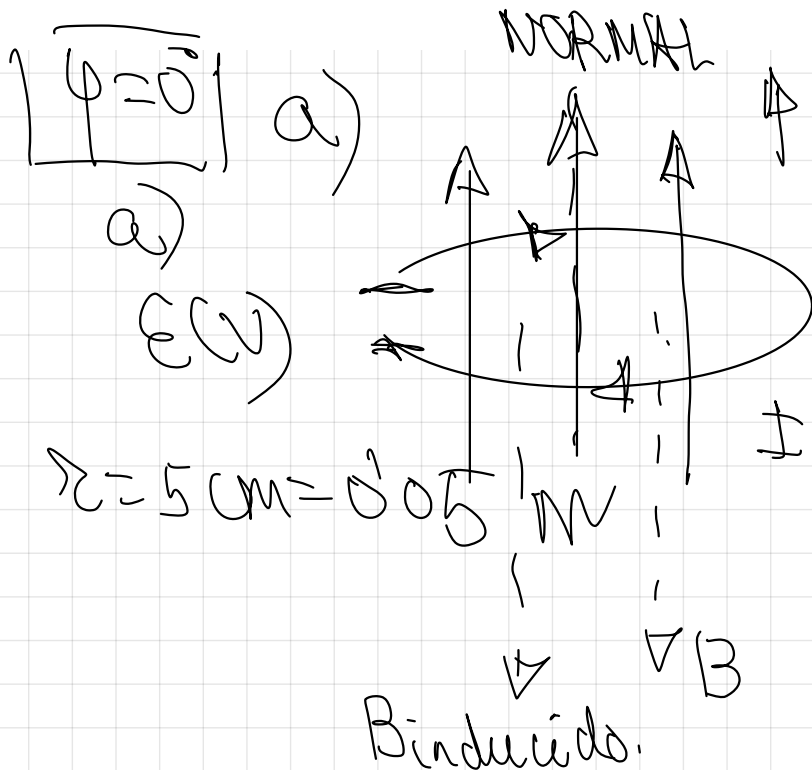 NORMAL
φ=0° a)
a)
ε(V)
I
r=5 cm=0'05 m
B
Binducido.